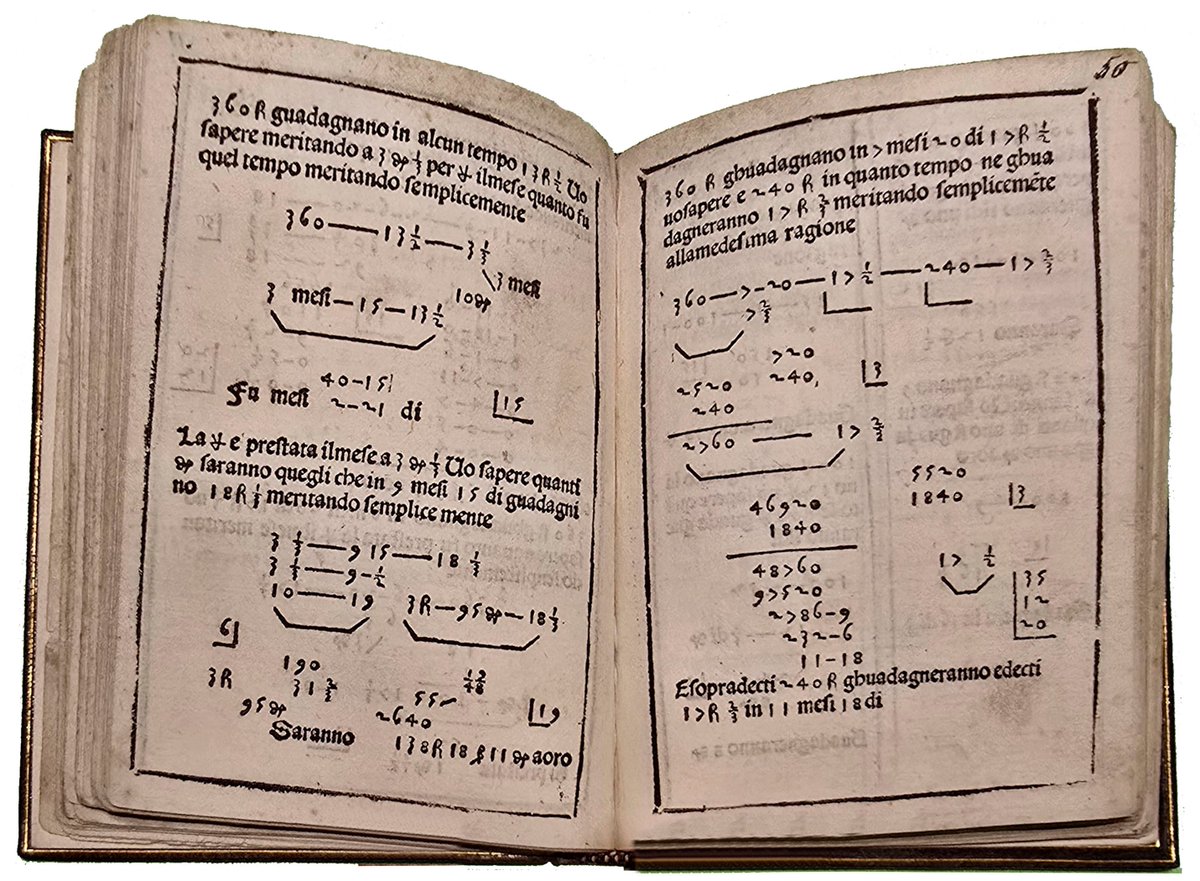 360 R guadagnano in alcun tempo 13 R ½ Uo
sapere meritando a 3 ₰ ⅓ per ℔ ilmese quanto fu
quel tempo meritando semplicemente
360 — 13 ½ — 3 ⅓
3 mesi
10 ₰
3 mesi — 15 — 13 ½
40-15
Fu mesi 2-21 di
15
La ℔ e prestata ilmese a 3 ₰ ⅓ Uo sapere quanti
₰ saranno quegli che in 9 mesi 15 di guadagni
no 18 R ⅓ meritando semplice mente
3 ⅓ — 9 15 — 18 ⅓
3 ⅓ — 9-½
10 — 19
3R — 95₰ — 18 ⅓
6
190
3R
31 ⅔
55
19
95₰
2640
Saranno
138 R 18 ß 11 ₰ aoro
50
360 R ghuadagnano in 7 mesi 20 di 17 R ½
uosapere e 240 R in quanto tempo ne ghua
dagneranno 17 R ⅔ meritando semplicemēte
allamedesima ragione
360 — 7-20 — 17 ½ — 240 — 17 ⅔
7 ⅔
720
2520
240
3
240
2760 — 17 ⅔
5520
46920
1840
3
1840
48760
17 ½
35
97520
12
2786-9
20
232-6
11-18
Esopradecti 240 R ghuadagneranno edecti
17 R ⅔ in 11 mesi 18 di